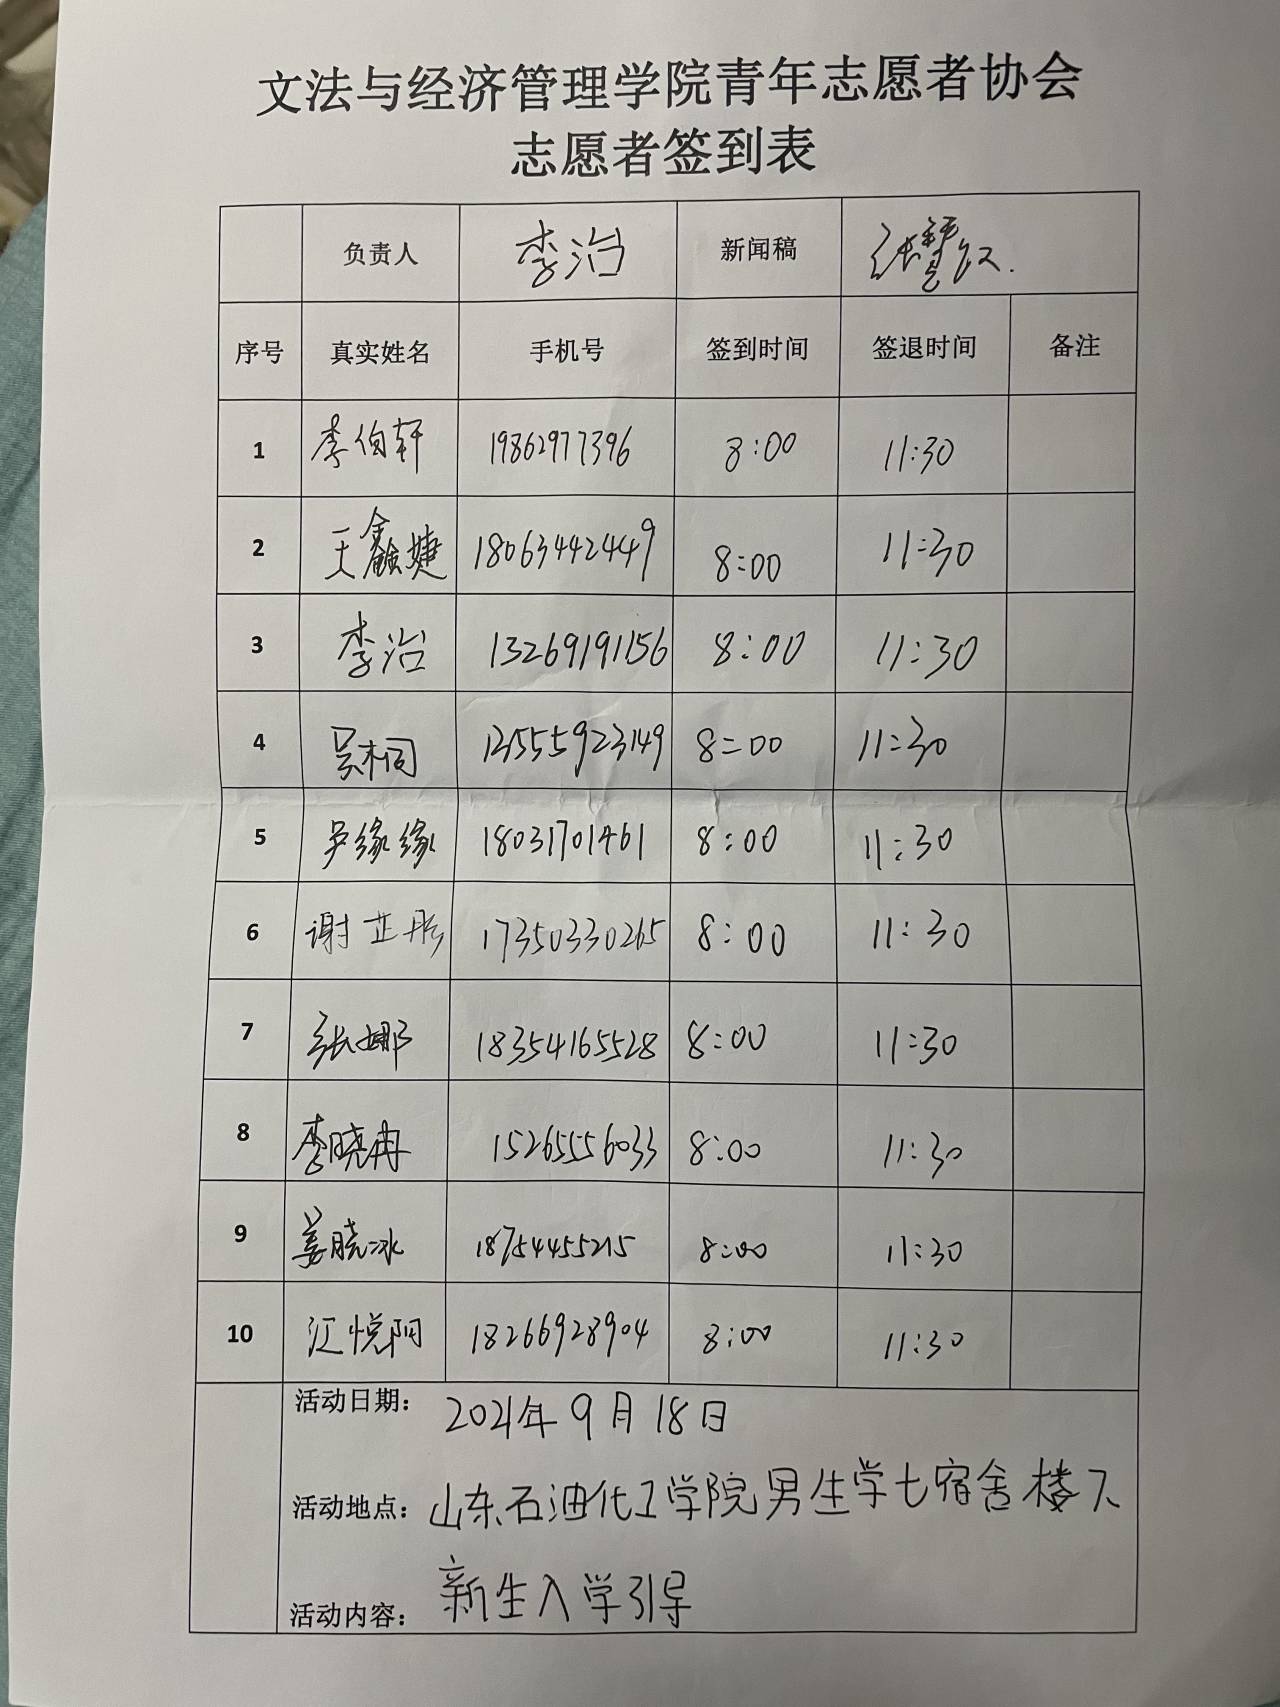 文法与经济管理学院青年志愿者协会
志愿者签到表
负责人 李治 新闻稿
序号 真实姓名 手机号 签到时间 签退时间 备注
1 李伯轩 19862977396 8:00 11:30
2 王鑫婕 18063442449 8:00 11:30
3 李治 13269191156 8:00 11:30
4 吴桐 8:00 11:30
5 尹缘缘 18031701461 8:00 11:30
6 谢芷彤 17350330265 8:00 11:30
7 张娜 18354165528 8:00 11:30
8 李晓冉 15265556033 8:00 11:30
9 姜晓冰 18754455215 8:00 11:30
10 江悦阳 18266928904 8:00 11:30
活动日期: 2021年9月18日
活动地点: 山东石油化工学院男生学七宿舍楼下
活动内容: 新生入学引导